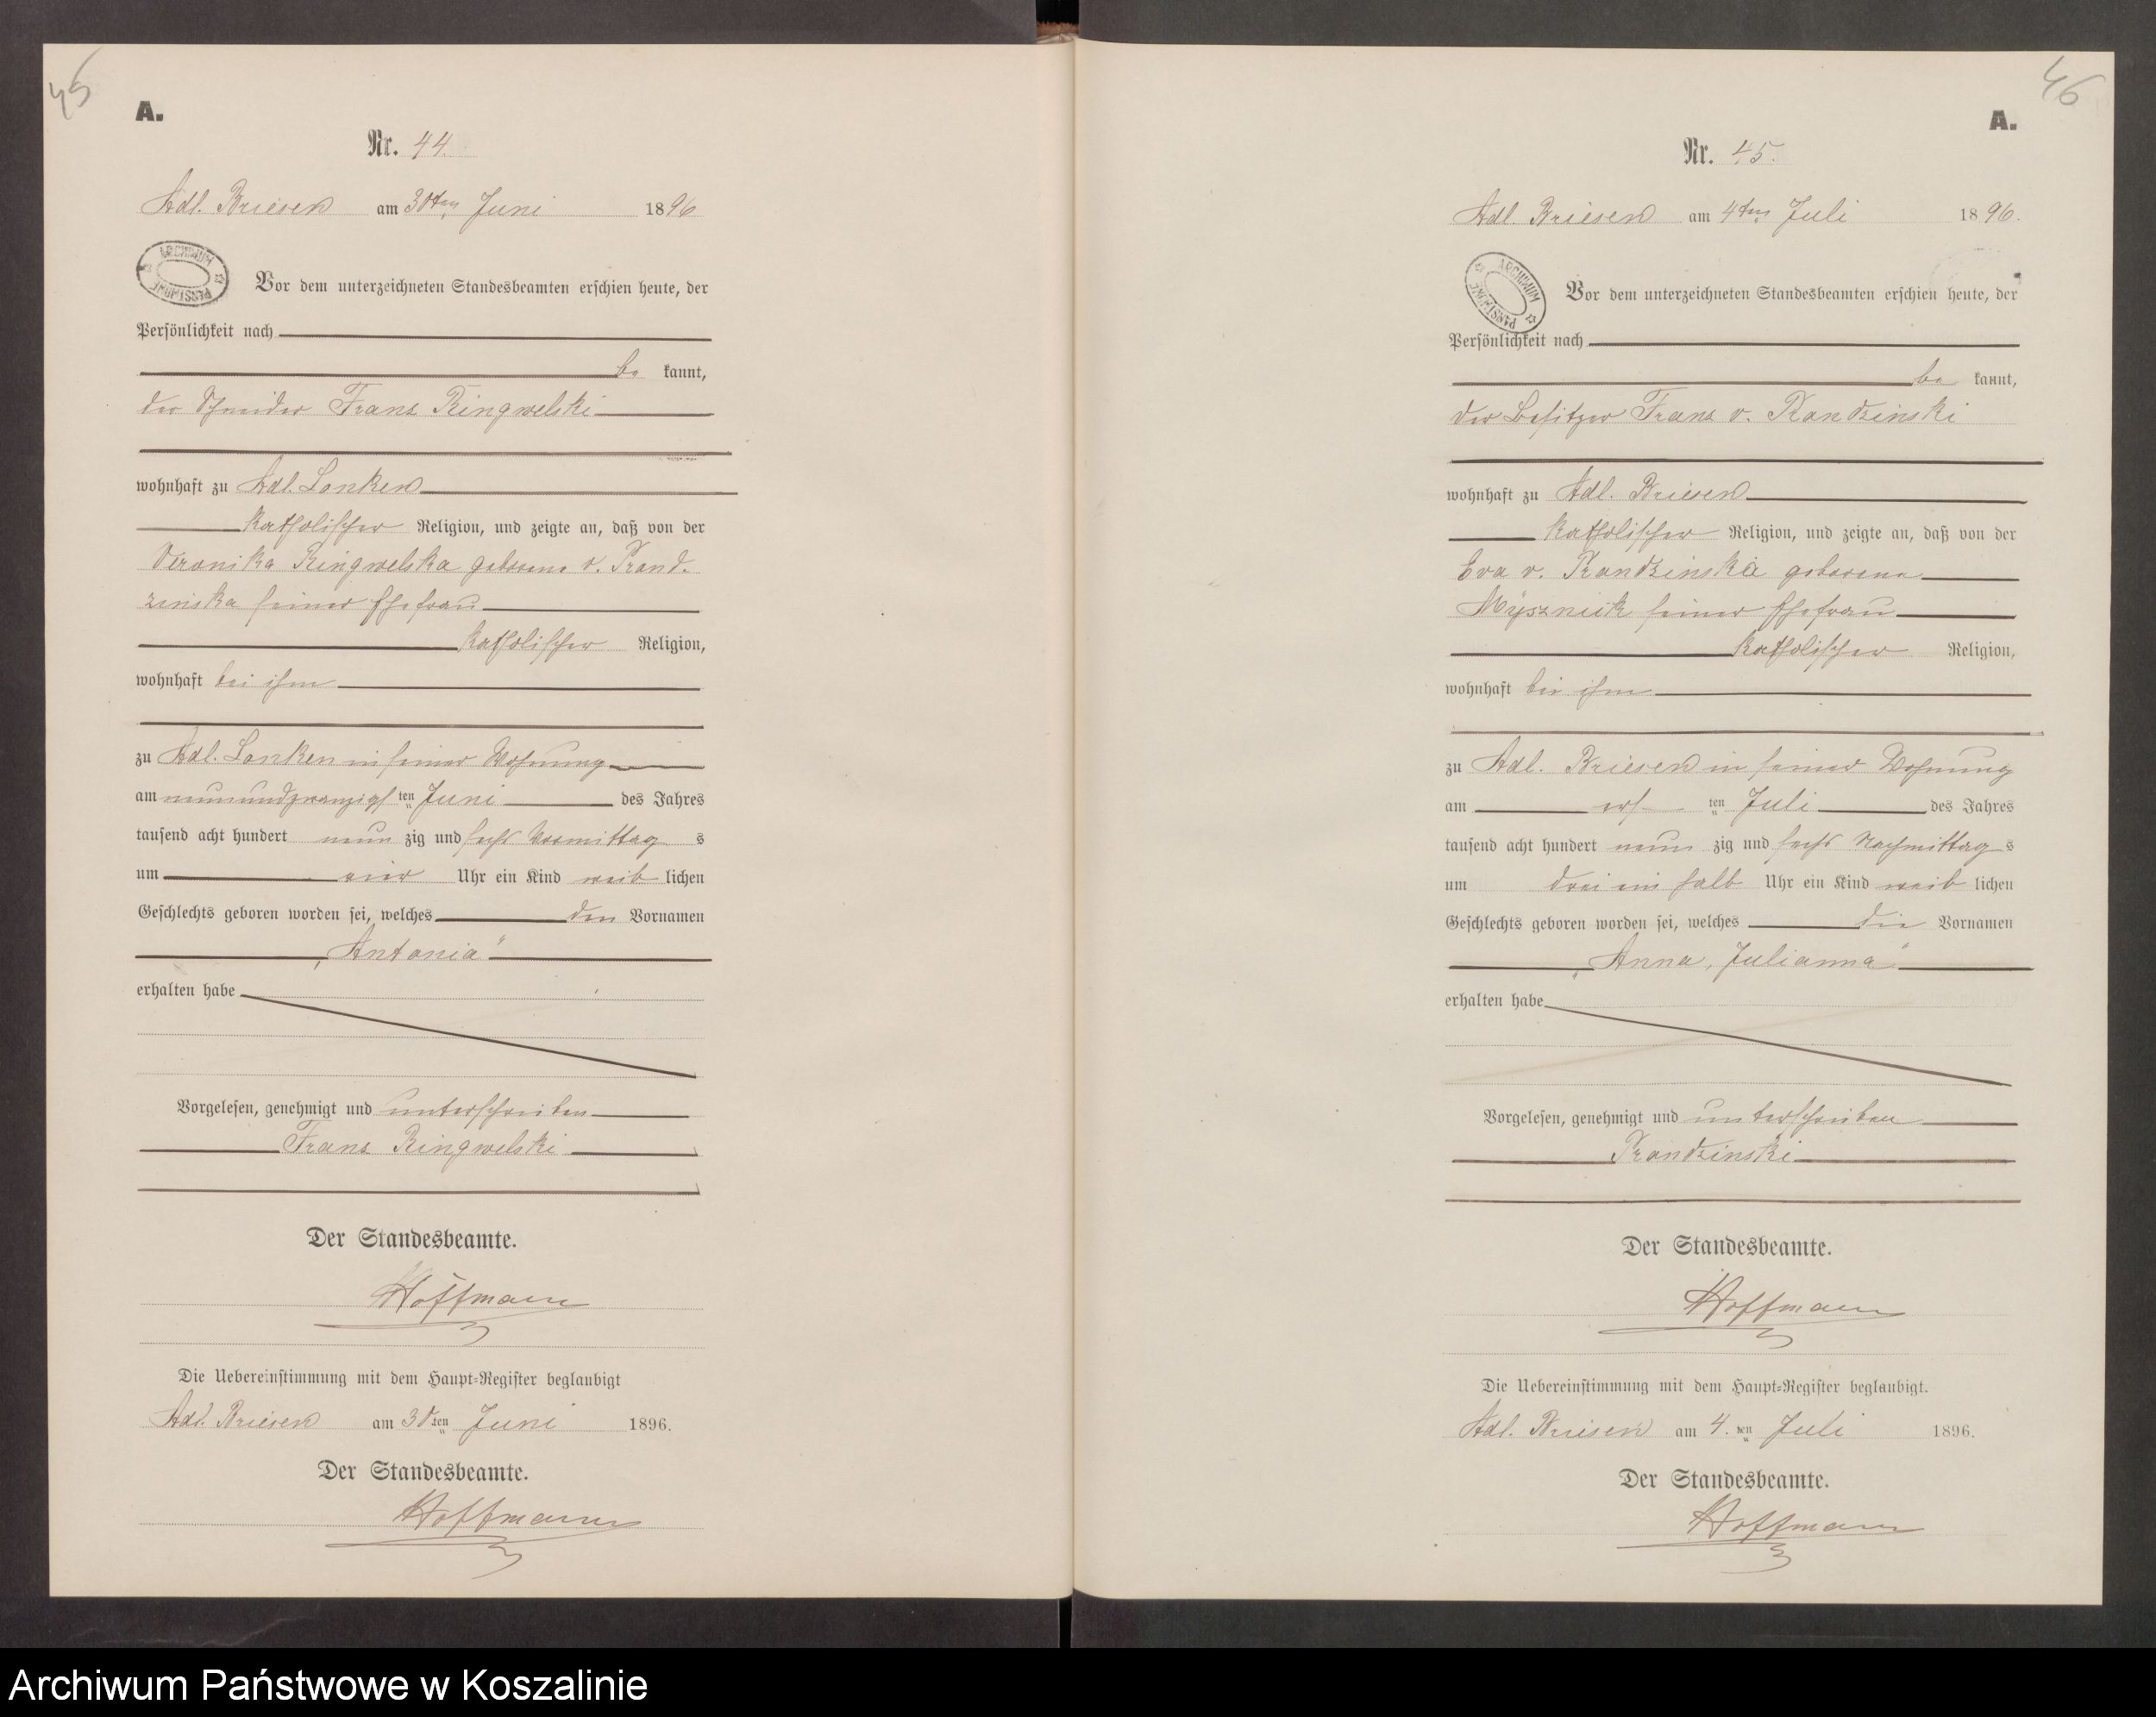 45
A.
Nr. 44.
Adl. Briesen am 30ten Juni 1896
ARCHIWUM PAŃSTWOWE
Vor dem unterzeichneten Standesbeamten erschien heute, der
Persönlichkeit nach
be kannt,
der Schneider Franz Ringwelski
wohnhaft zu Adl. Lonken
katholischer Religion, und zeigte an, daß von der
Veronika Ringwelska geborene v. Kand-
zinska seiner Ehefrau
katholischer Religion,
wohnhaft bei ihm
zu Adl. Lonken in seiner Wohnung
am neunundzwanzigsten Juni des Jahres
tausend acht hundert neun zig und sechs Vormittag s
um vier Uhr ein Kind weib lichen
Geschlechts geboren worden sei, welches den Vornamen
„Antonia"
erhalten habe
Vorgelesen, genehmigt und unterschrieben
Franz Ringwelski
Der Standesbeamte.
Hoffmann
Die Uebereinstimmung mit dem Haupt-Register beglaubigt
Adl. Briesen am 30ten Juni 1896.
Der Standesbeamte.
Hoffmann
46
A.
Nr. 45.
Adl. Briesen am 4ten Juli 1896.
ARCHIWUM PAŃSTWOWE
Vor dem unterzeichneten Standesbeamten erschien heute, der
Persönlichkeit nach
be kannt,
der Besitzer Franz v. Kandzinski
wohnhaft zu Adl. Briesen
katholischer Religion, und zeigte an, daß von der
Eva v. Kandzinska geborene
Mysznick seiner Ehefrau
katholischer Religion,
wohnhaft bei ihm
zu Adl. Briesen in seiner Wohnung
am ers ten Juli des Jahres
tausend acht hundert neun zig und sechs Nachmittag s
um drei ein halb Uhr ein Kind weib lichen
Geschlechts geboren worden sei, welches die Vornamen
„Anna, Julianna"
erhalten habe
Vorgelesen, genehmigt und unterschrieben
Kandzinski
Der Standesbeamte.
Hoffmann
Die Uebereinstimmung mit dem Haupt-Register beglaubigt.
Adl. Briesen am 4. ten Juli 1896.
Der Standesbeamte.
Hoffmann
Archiwum Państwowe w Koszalinie